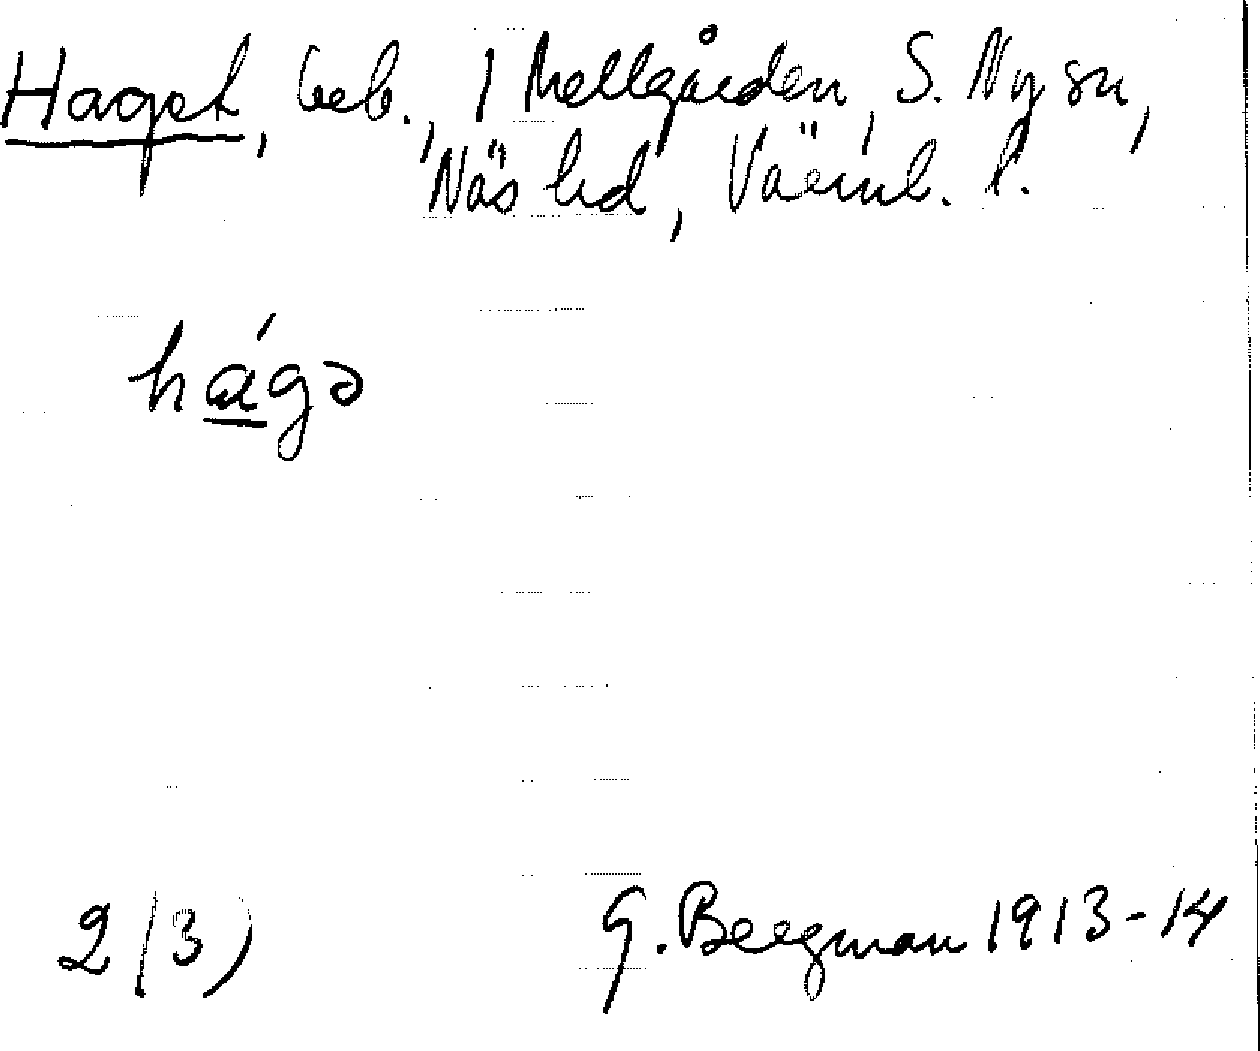 Haget, beb., 1 Mellgården, S. Ny sn,
Näs hd, Värml. l.
há̲gə
2(3)
G. Bergman 1913-14